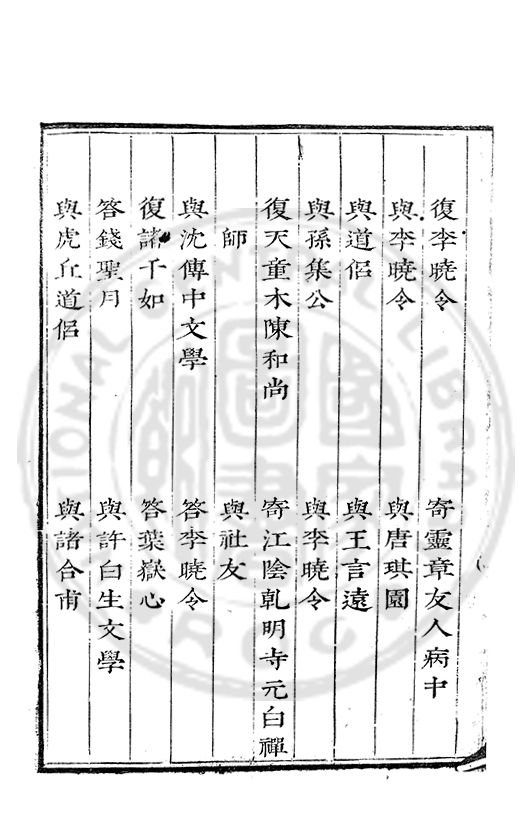 復李曉令　寄靈章友人病中
與李曉令　與唐琪園
與道侶　與王言遠
與孫集公　與李曉令
復天童木陳和尚　寄江陰乾明寺元白禪
師　與社友
與沈傳中文學　答李曉令
復諸千如　答葉嶽心
答錢聖月　與許白生文學
與虎丘道侶　與諸合甫